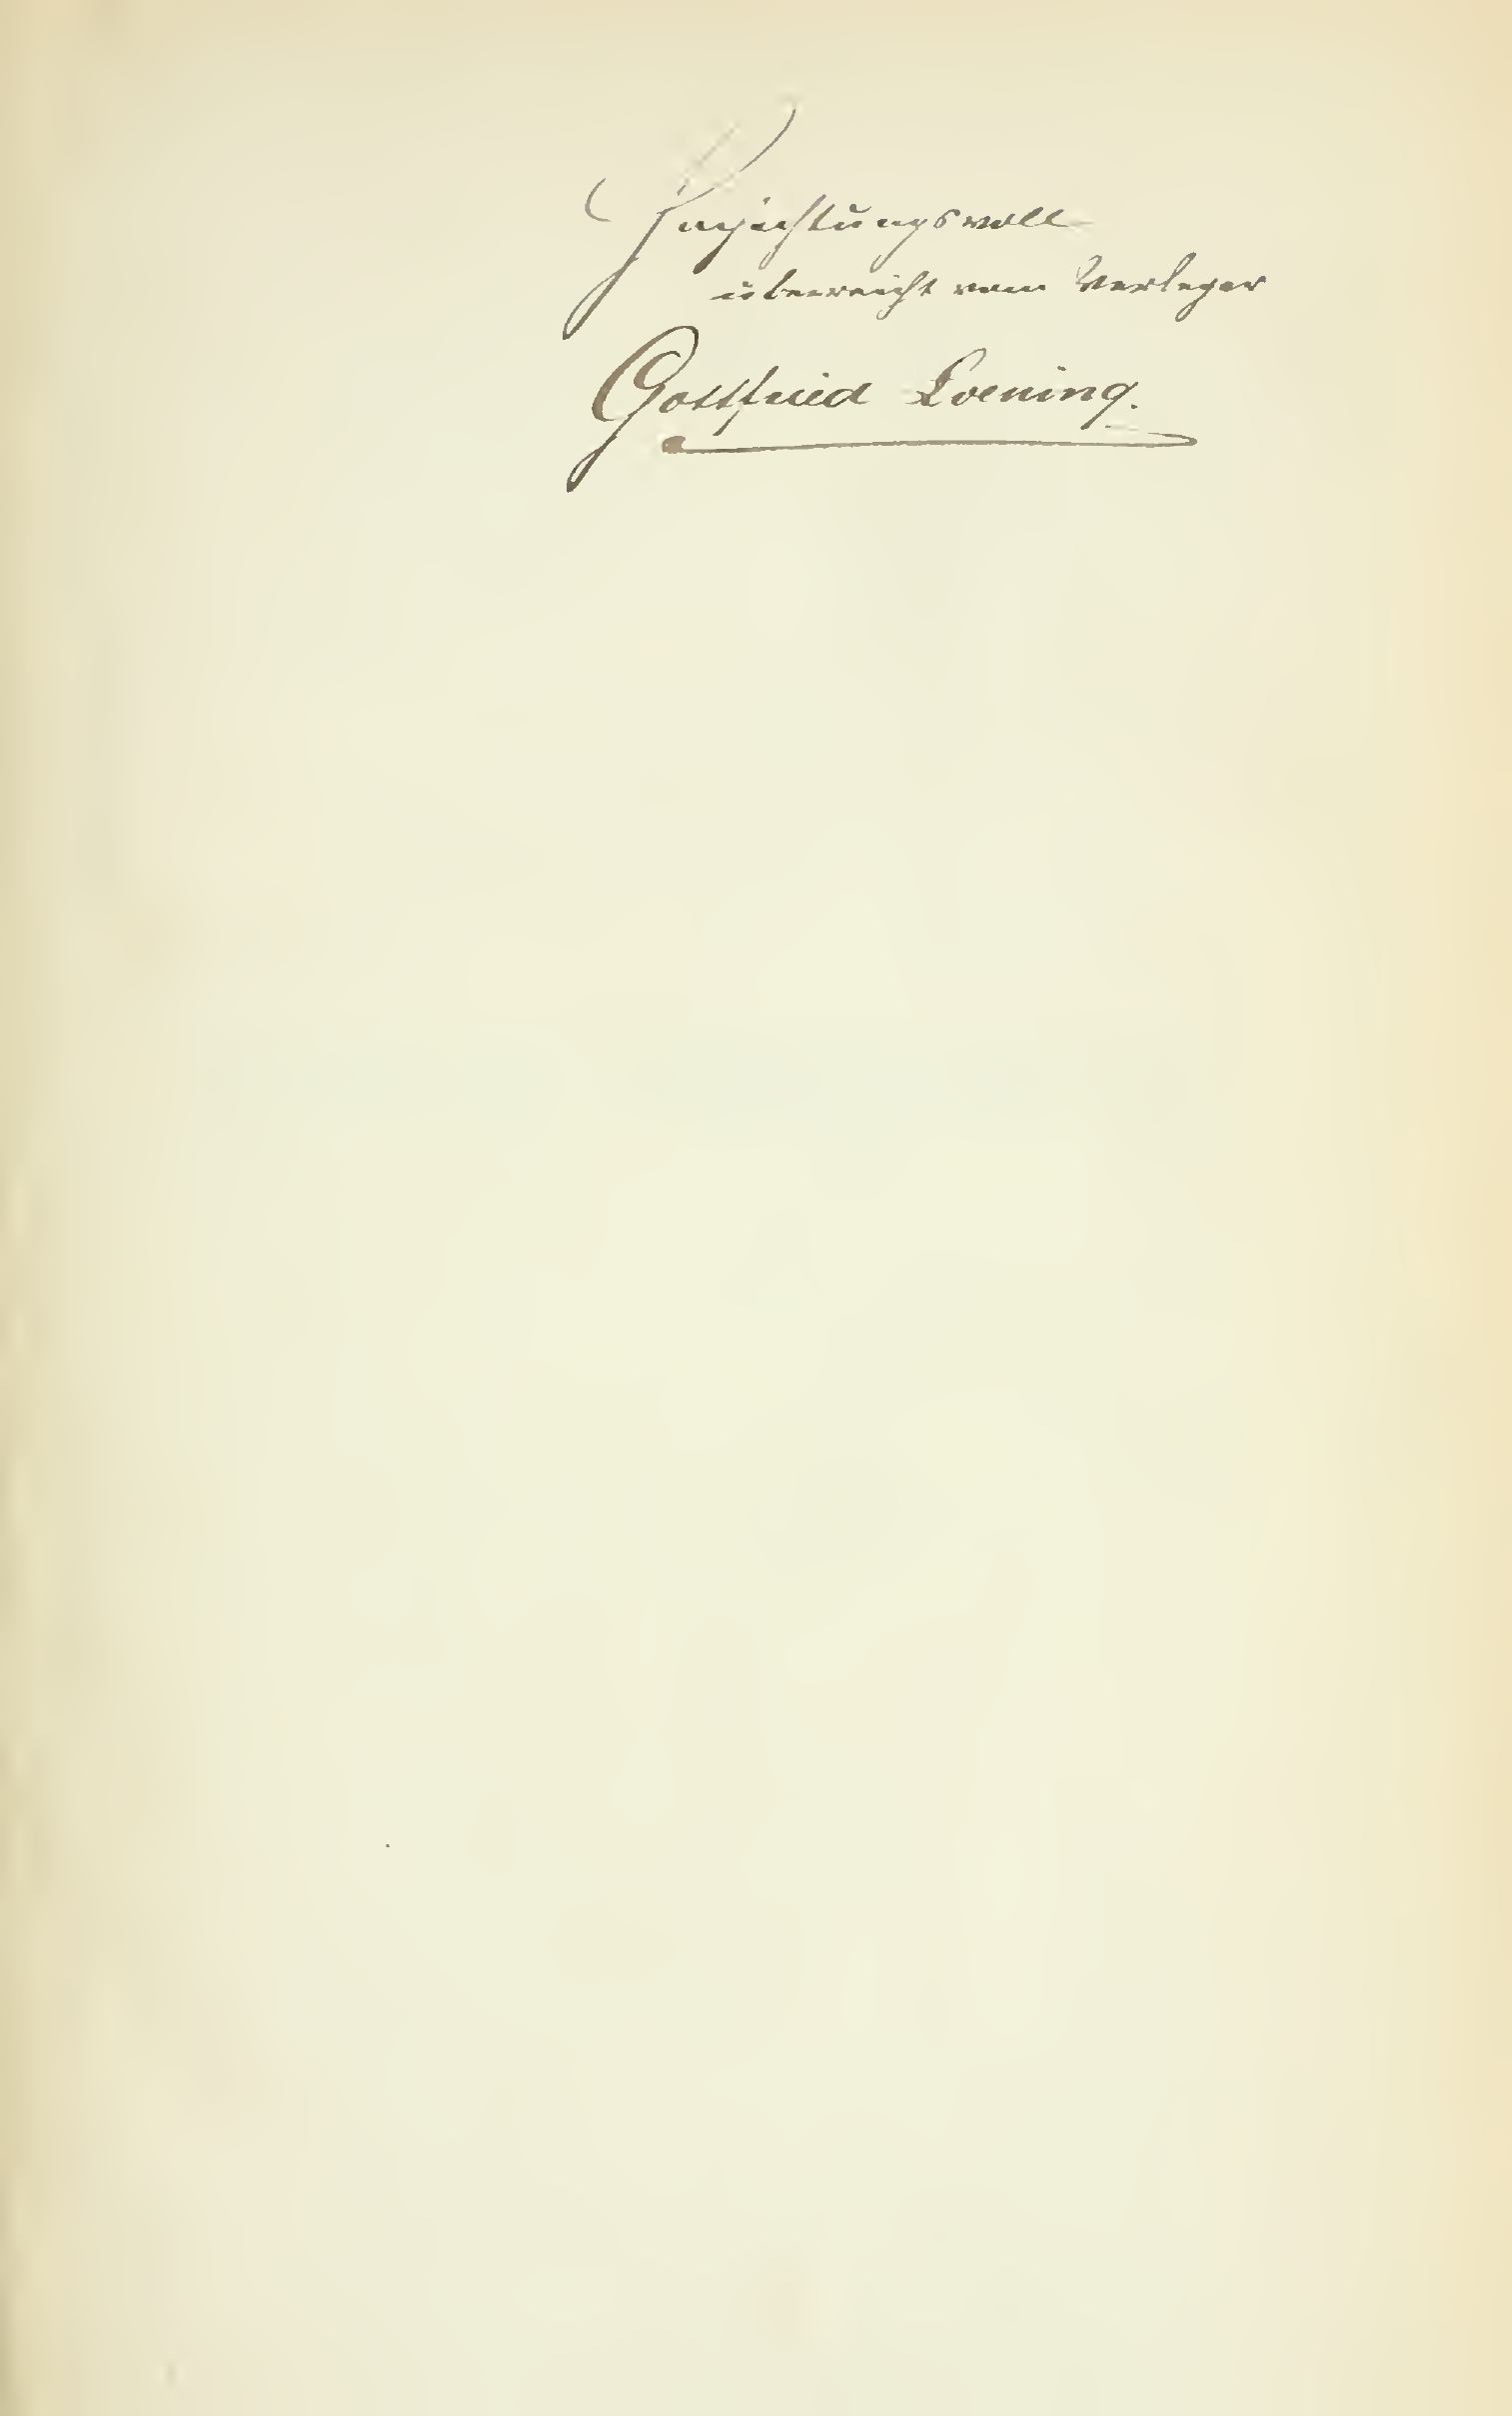 Hochachtungsvoll
überreicht vom Verleger
Gottfried Loening.